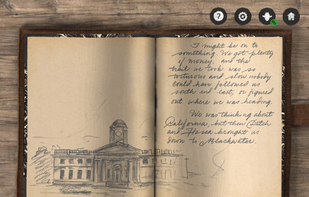 I might be on to
something. We got plenty
of money, and the
trail we took was so
torturous and slow nobody
could have followed us
south and east, or figured
out where we was heading.
We was thinking about
California, but then Dutch
and Hosea brought us
down to Blackwater.